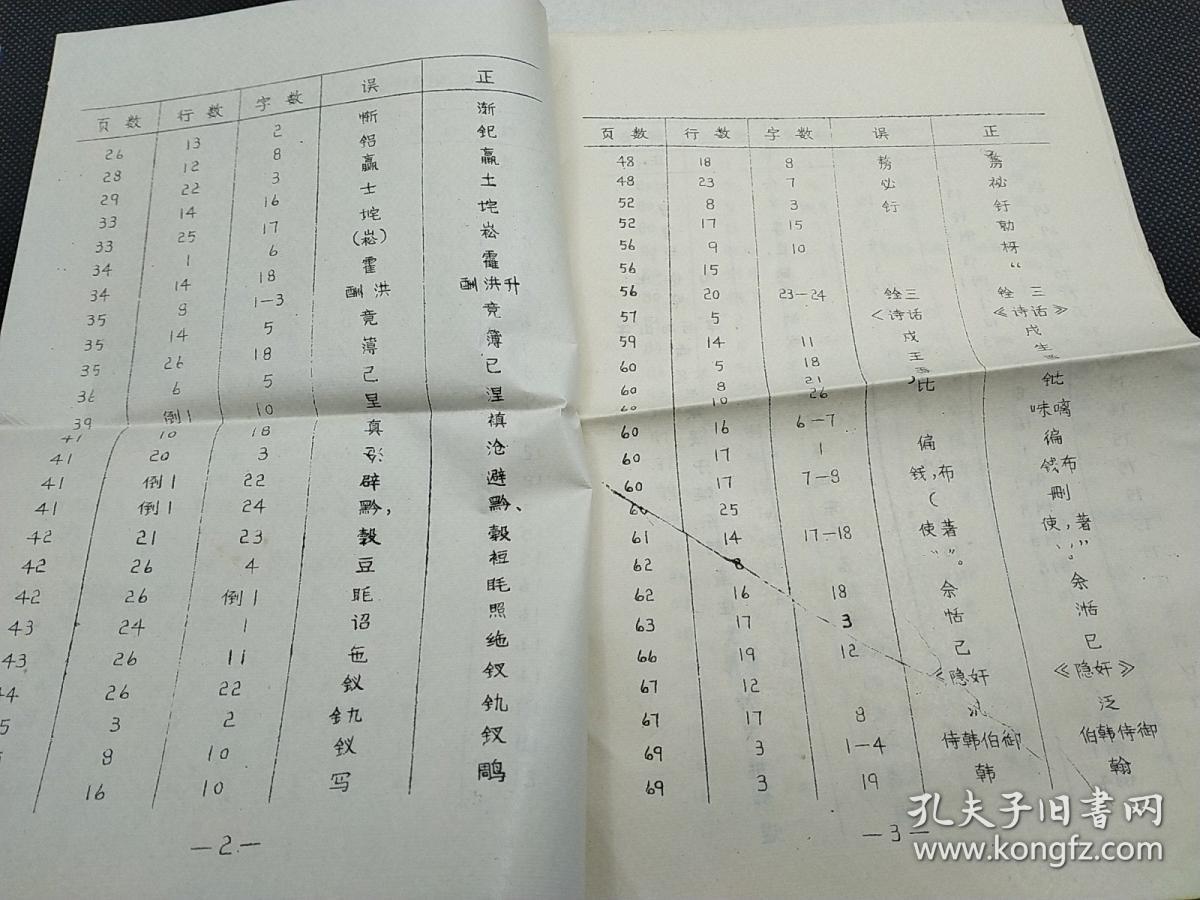 页数 行数 字数 误 正
26 13 2 惭 渐
28 12 8 铝 钯
29 22 3 赢 赢
33 14 16 士 土
33 25 17 垞 垞
34 1 6 (崧) 崧
34 14 18 霍 靃
35 8 1—3 酬洪 酬洪升
35 14 5 竟 竞
35 26 18 薄 簿
36 6 5 己 已
39 倒1 10 里 涅
41 10 18 真 禛
41 20 3 沧
41 倒1 22 辟 避
41 倒1 24 黔, 黔、
42 21 23 毂 毂
42 26 4 豆 裋
42 26 倒1 眊 眊
43 24 1 诏 照
43 26 11 色 绝
44 26 22 钗
5 3 2 钊
8 10 钗
16 10 写 鹏
—2—
页数 行数 字数 误 正
48 18 8
48 23 7 必 祕
52 8 3 钘 钎
52 17 15 勖
56 9 10 枒
56 15 “
56 20 23—24 铨三 铨三
57 5 <诗话 《诗话》
59 14 11 戍 戌
60 5 18 王
60 8 21
60 10 26 比 铋
60 16 6—7 咪嘀
60 17 1 偏 徧
60 17 7—8 钱,布 钱布
60 25 ( 删
61 14 17—18 使著 使,著
62 8 “”。
62 16 18 余 余
63 17 3 恬 湉
66 19 12 己 巳
67 12 《隐奸 《隐奸》
67 17 8 泛
69 3 1—4 侍韩伯御 伯韩侍御
69 3 19 韩 翰
—3—
孔夫子旧书网
www.kongfz.com